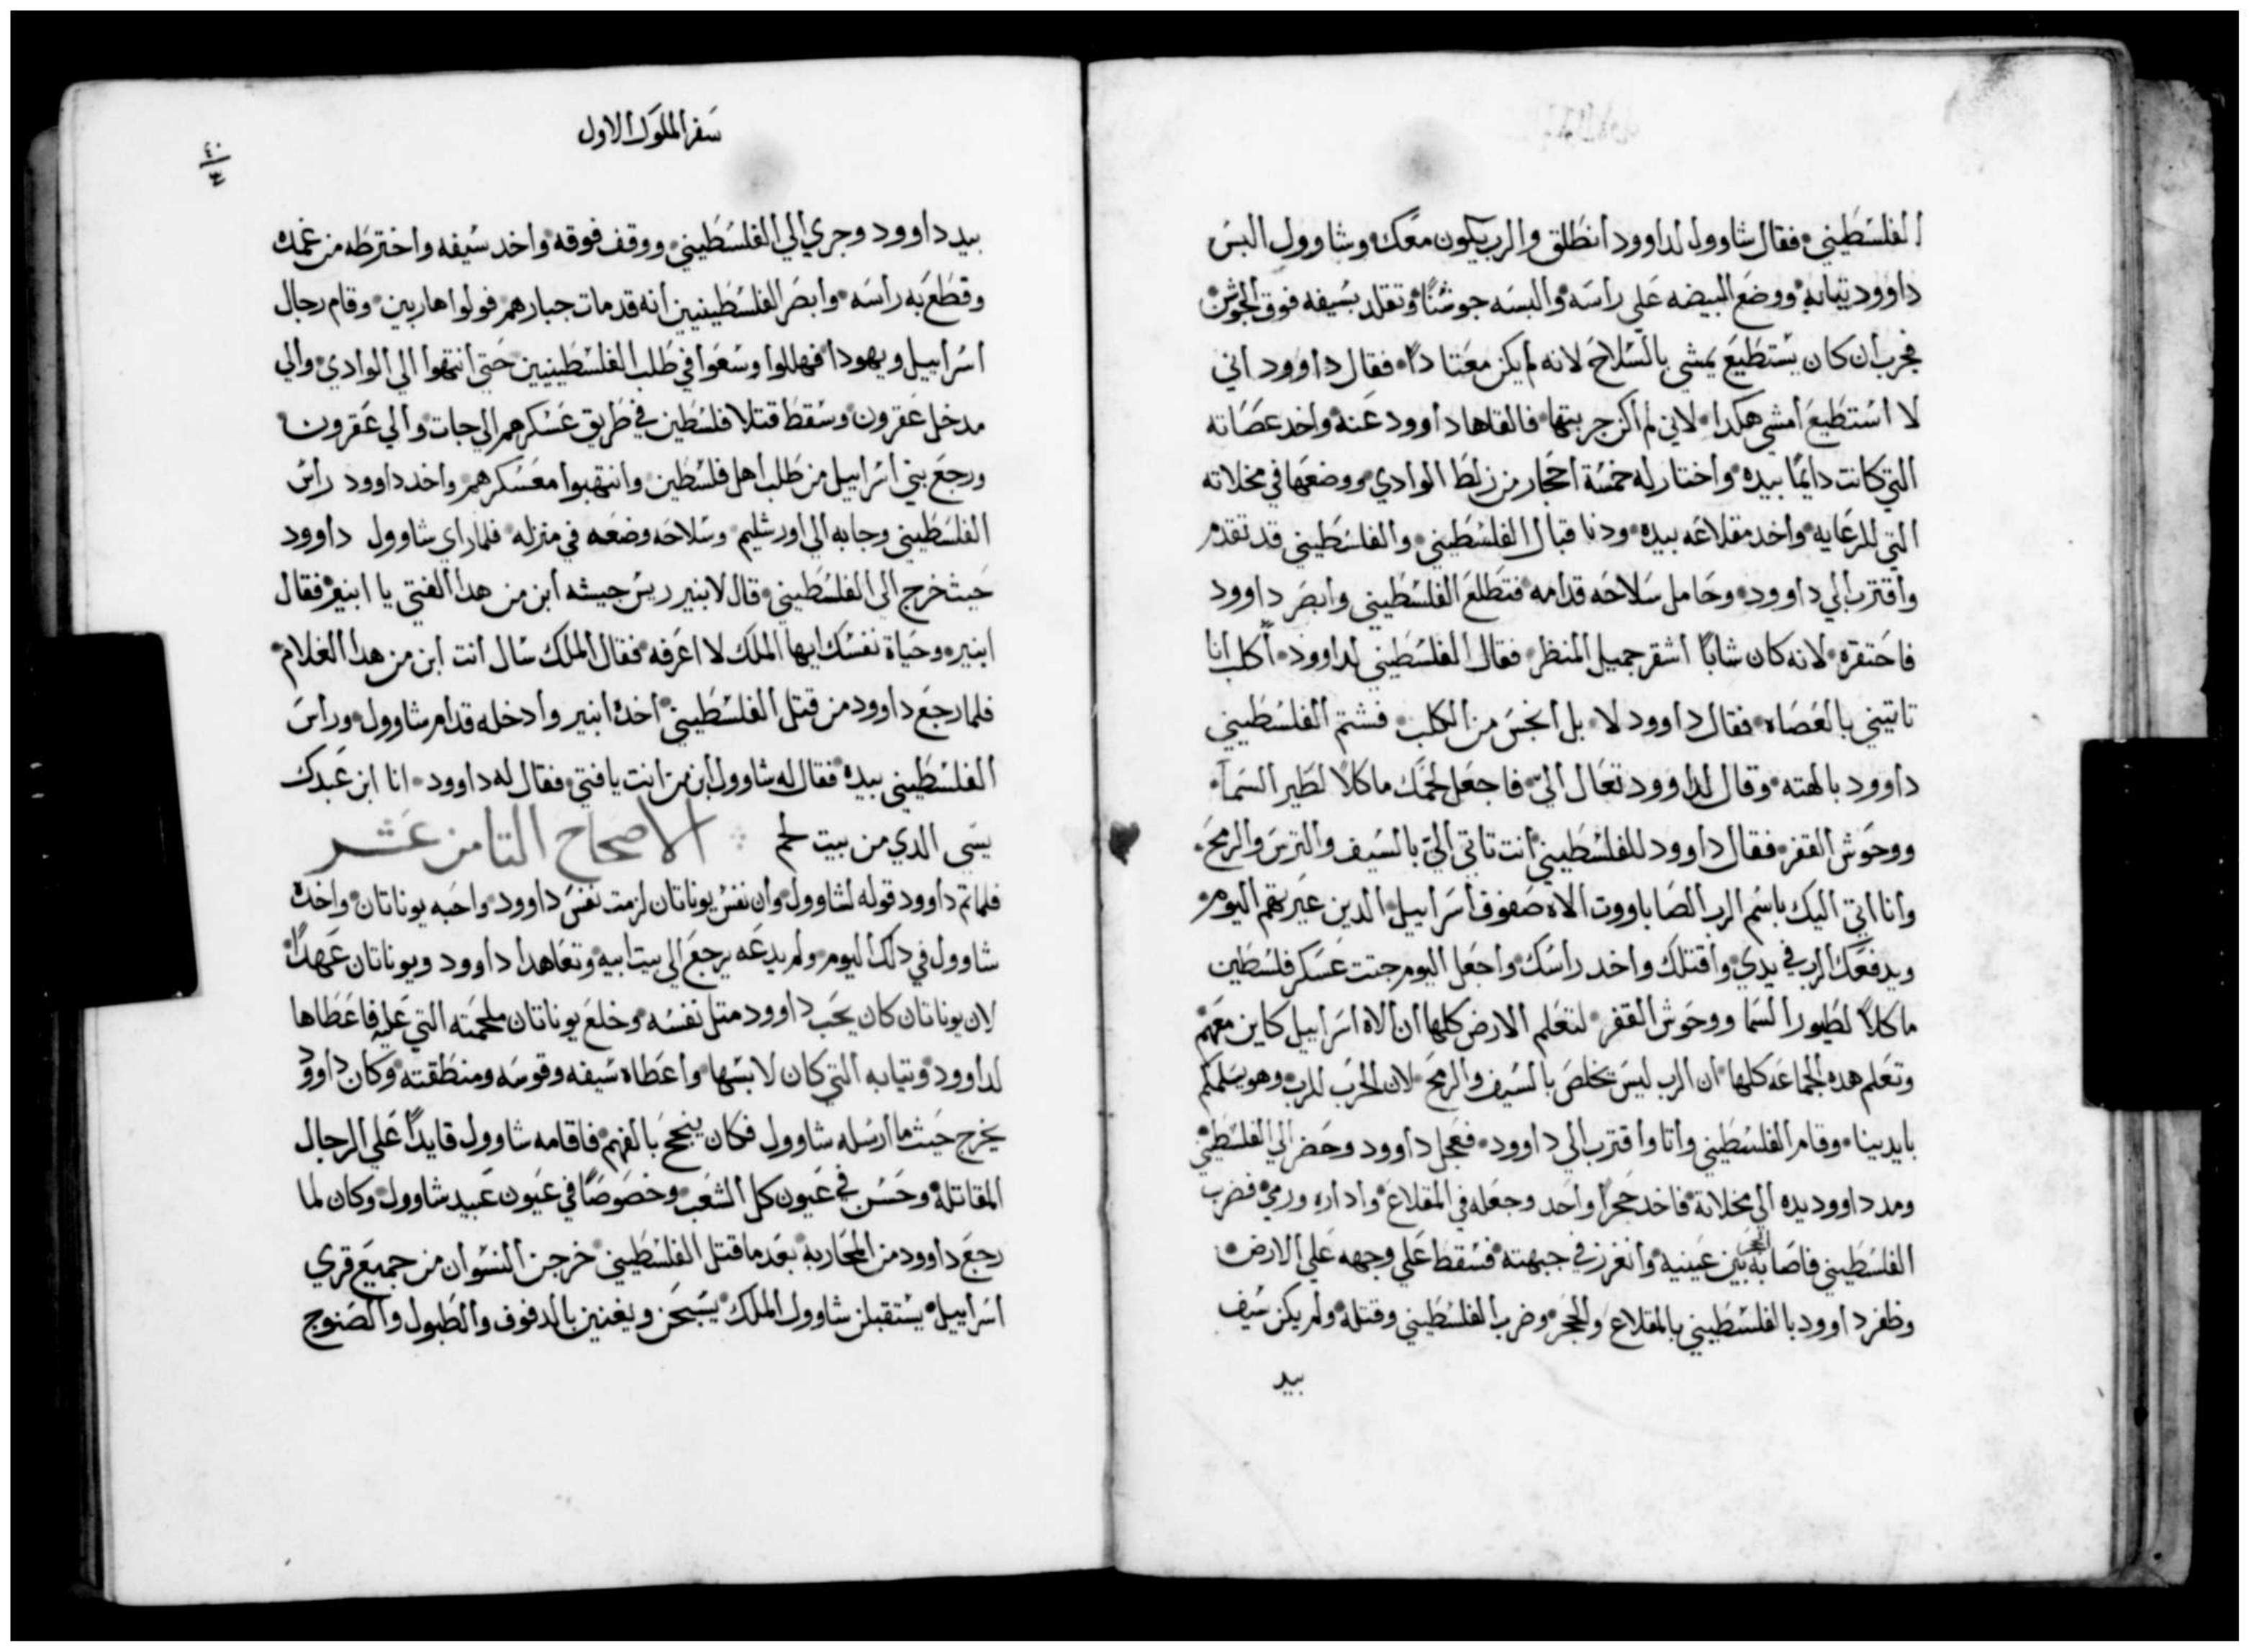 الفلسطيني فقال شاوول لداوود انطلق والرب يكون معك وشاوول البس
داوود تيابه ووضع البيضه علي راسه والبسه جوشنًا وتقلد بسيفه فوق الجوشن
فجرب ان كان يستطيع يمشي بالسلاح لانه لم يكن معتادًا فقال داوود اني
لا استطيع امشي هكدا لاني لم اكن جربتها فالقاها داوود عنه واخد عصاته
التي كانت دايمًا بيده واختار له خمسة احجار من زلط الوادي ووضعها في مخلاته
التي للرعايه واخد مقلاعه بيده ودنا قبال الفلسطيني والفلسطيني قد تقدم
واقترب الي داوود وحامل سلاحه قدامه فتطلع الفلسطيني وابصر داوود
فاحتقره لانه كان شابًا اشقر جميل المنظر فقال الفلسطيني لداوود اكلب انا
تاتيني بالعصاه فقال داوود لا بل انجس من الكلب فشتم الفلسطيني
داوود بالهته وقال لداوود تعال اليّ فاجعل لحمك ماكلًا لطير السمآ
ووحوش القفر فقال داوود للفلسطيني انت تاتي اليّ بالسيف والترس والرمح
وانا اتي اليك باسم الرب الصاباووت الاه صفوف اسراييل الدين عيرتهم اليوم
ويدفعك الرب في يدي واقتلك واخد راسك واجعل اليوم جتت عسكر فلسطين
ماكلاً لطيور السما ووحوش القفر لتعلم الارض كلها ان الاه اسراييل كاين معهم
وتعلم هده الجماعه كلها ان الرب ليس يخلص بالسيف والرمح لان الحرب للرب وهو يسلمكم
بايدينا وقام الفلسطيني واتا واقترب الي داوود فعجل داوود وحضر الي الفلسطيني
ومد داوود يده الي مخلاتة فاخد حجرًا واحد وجعله في المقلاع واداره ورمي فضرب
الفلسطيني فاصابه الحجر بين عينيه وانغرز في جبهته فسقط علي وجهه علي الارض
وظفر داوود بالفلسطيني بالمقلاع والحجر وضرب الفلسطيني وقتله ولم يكن سيف
بيد
سفر الملوك الاول
٤٠
بيد داوود وجري الي الفلسطيني ووقف فوقه واخد سيفه واخترطه من غمده
وقطع به راسه وابصر الفلسطينيين انه قد مات جبارهم فولوا هاربين وقام رجال
اسراييل ويهودا فهللوا وسعوا في طلب الفلسطينيين حتي انتهوا الي الوادي والي
مدخل عقرون وسقط قتلا فلسطين في طريق عسكرهم الي جات والي عقرون
ورجع بني اسراييل من طلب اهل فلسطين وانتهبوا معسكرهم واخد داوود راس
الفلسطيني وجابه الي اورشليم وسلاحه وضعه في منزله فلما راي شاوول داوود
حيث خرج الي الفلسطيني قال لابنير ريس جيشه ابن من هدا الفتي يا ابنير فقال
ابنير وحياة نفسك ايها الملك لا اعرفه فقال الملك سال انت ابن من هدا الغلام
فلما رجع داوود من قتل الفلسطيني اخده ابنير وادخله قدام شاوول وراس
الفلسطيني بيده فقال له شاوول ابن من انت يافتي فقال له داوود انا ابن عبدك
يسي الدي من بيت لحم الاصحاح التامن عشر
فلما تم داوود قوله لشاوول وان نفس يوناتان لزمت نفس داوود واحبه يوناتان واخده
شاوول في دلك اليوم ولم يدعه يرجع الي بيت ابيه وتعاهدا داوود ويوناتان عهدًا
لان يوناتان كان يحب داوود متل نفسه وخلع يوناتان ملحمته التي عليه فاعطاها
لداوود وتيابه التي كان لابسها واعطاه سيفه وقوسه ومنطقته وكان داوود
يخرج حيث ما ارسله شاوول فكان ينجح بالفهم فاقامه شاوول قايدًا علي الرجال
المقاتله وحسن في عيون كل الشعب وخصوصًا في عيون عبيد شاوول وكان لما
رجع داوود من المحاربه بعد ما قتل الفلسطيني خرجن النسوان من جميع قري
اسراييل يستقبلن شاوول الملك يسبحن ويغنين بالدفوف والطبول والصنوج